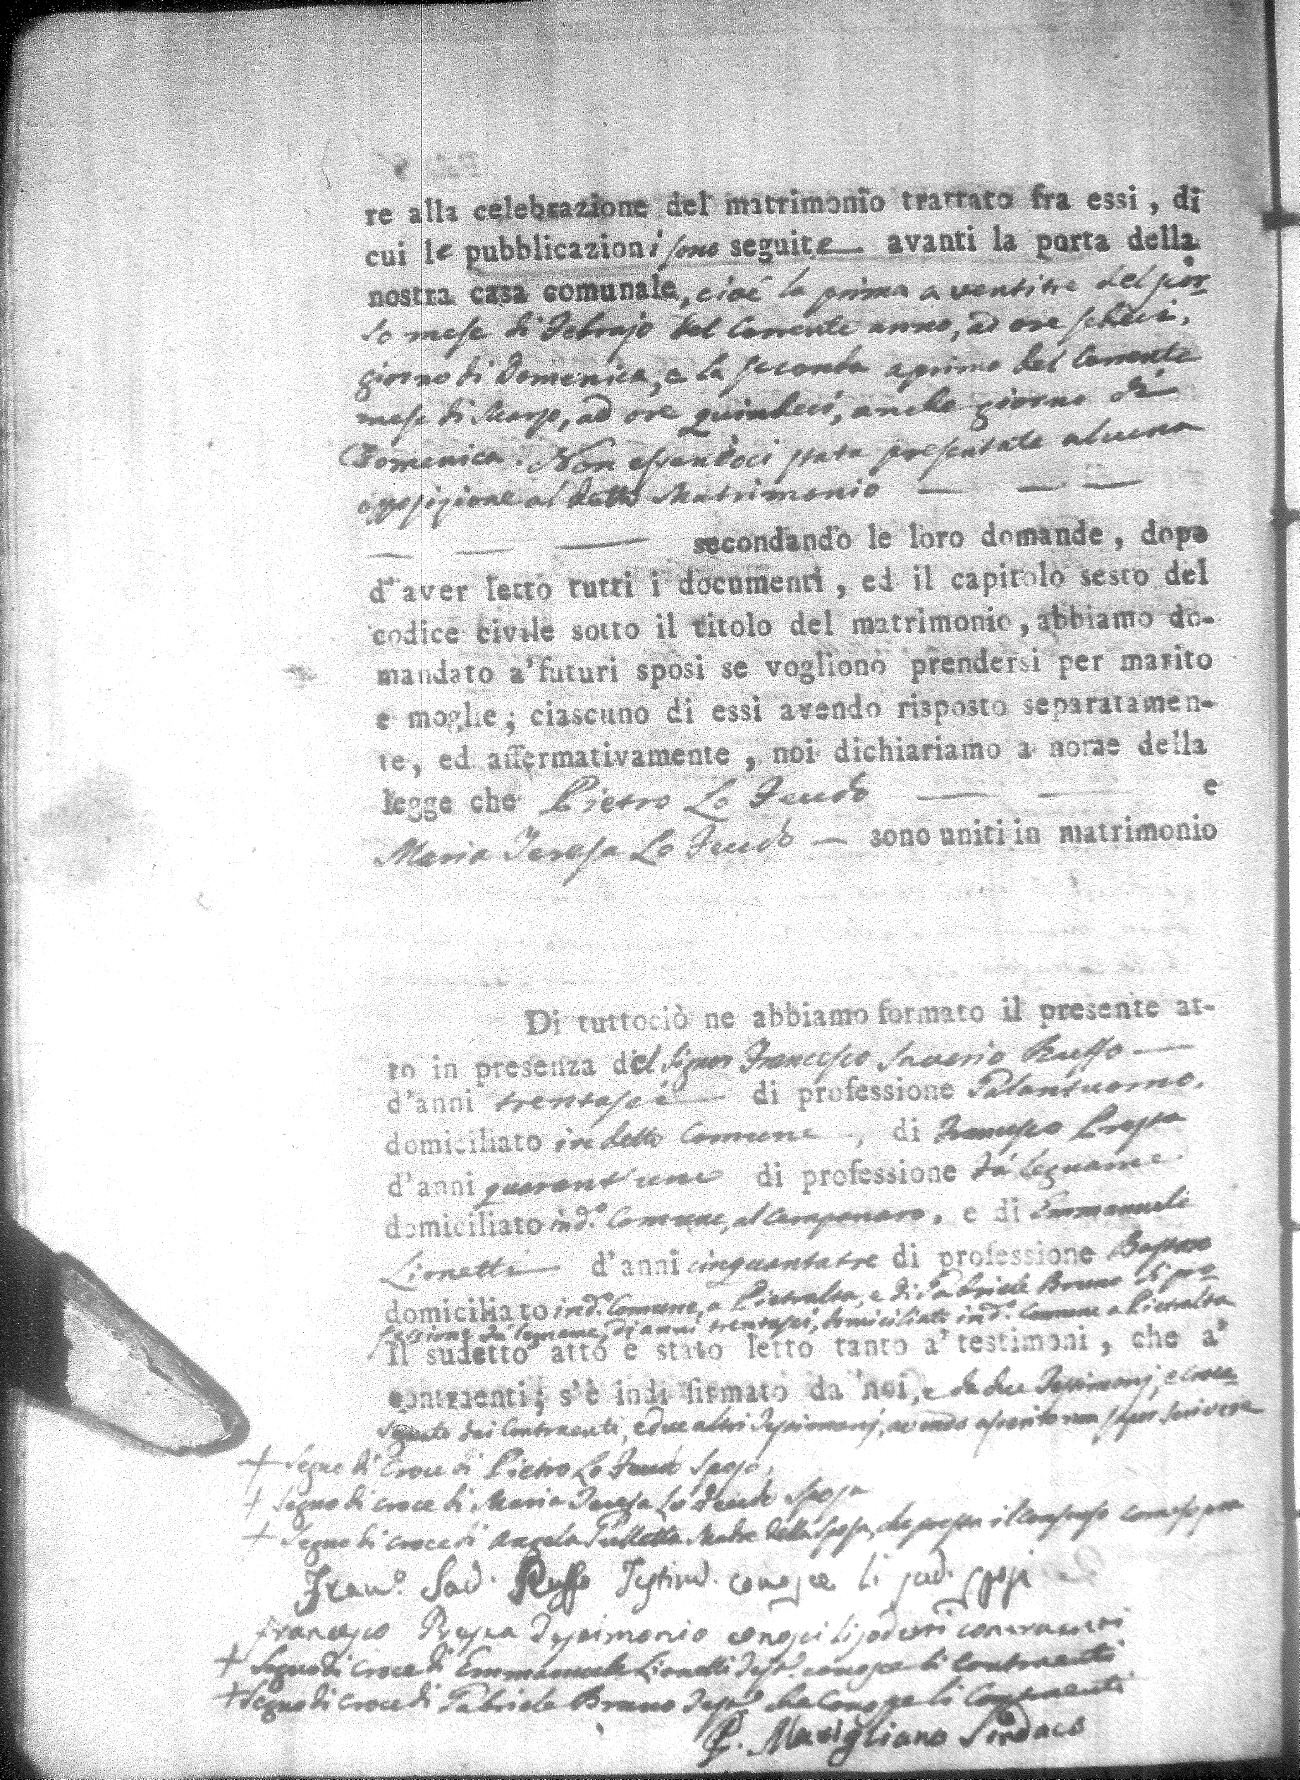 re alla celebrazione del matrimonio trattato fra essi, di
cui le pubblicazioni sono seguite avanti la porta della
nostra casa comunale, cioè la prima a ventitre del scor-
so mese di Febrajo del Corrente anno, ad ore sedici,
giorno di Domenica, e la seconda a primo del Corrente
mese di Marzo, ad ore quindeci, anche giorno di
Domenica. Non essendoci stata presentata alcuna
opposizione al detto Matrimonio
secondando le loro domande, dopo
d'aver letto tutti i documenti, ed il capitolo sesto del
codice civile sotto il titolo del matrimonio, abbiamo do-
mandato a'futuri sposi se vogliono prendersi per marito
e moglie; ciascuno di essi avendo risposto separatamen-
te, ed affermativamente, noi dichiariamo a norae della
legge che Pietro Lo Feudo e
Maria Teresa Lo Feudo sono uniti in matrimonio
Di tuttociò ne abbiamo formato il presente at-
to in presenza del Signor Francesco Saverio Ruffo
d'anni trentasei di professione Galantuomo.
domiciliato in detto Comune, di Francesco Pressa
d'anni quarant'uno di professione Fa legname
domiciliato in d.º Comune, al Campanaro, e di Emmanuele
Lionetti d'anni cinquantatre di professione
domiciliato in d.º Comune, a Pietralta, e di Gabriele Bruno di pro-
fessione Fa legname, di anni trentasei, domiciliato in d.º Comune a Pietralta
Il sudetto atto è stato letto tanto a' testimoni, che a'
contraenti; s'è indi firmato da noi, e da due Testimonj, e croce-
segnato dai Contraenti, e due altri Testimonj, avendo asserito non saper scrivere
+ Segno di Croce di Pietro Lo Feudo Sposo
+ Segno di croce di Maria Teresa Lo Feudo Sposa
+ Segno di croce di Angela Madre della Sposa, che presta il Consenso come sopra
Franc.º Sav. Ruffo Testim. conosce li sud. sposi
Francesco Pressa Testimonio conosci li sodetti contraenti
+ Segno di Croce di Emmanuele Lionetti Test.º conosce li contraenti
+ Segno di Croce di Gabriele Bruno Test.º che conosce li Contraenti
P. Mavigliano Sindaco